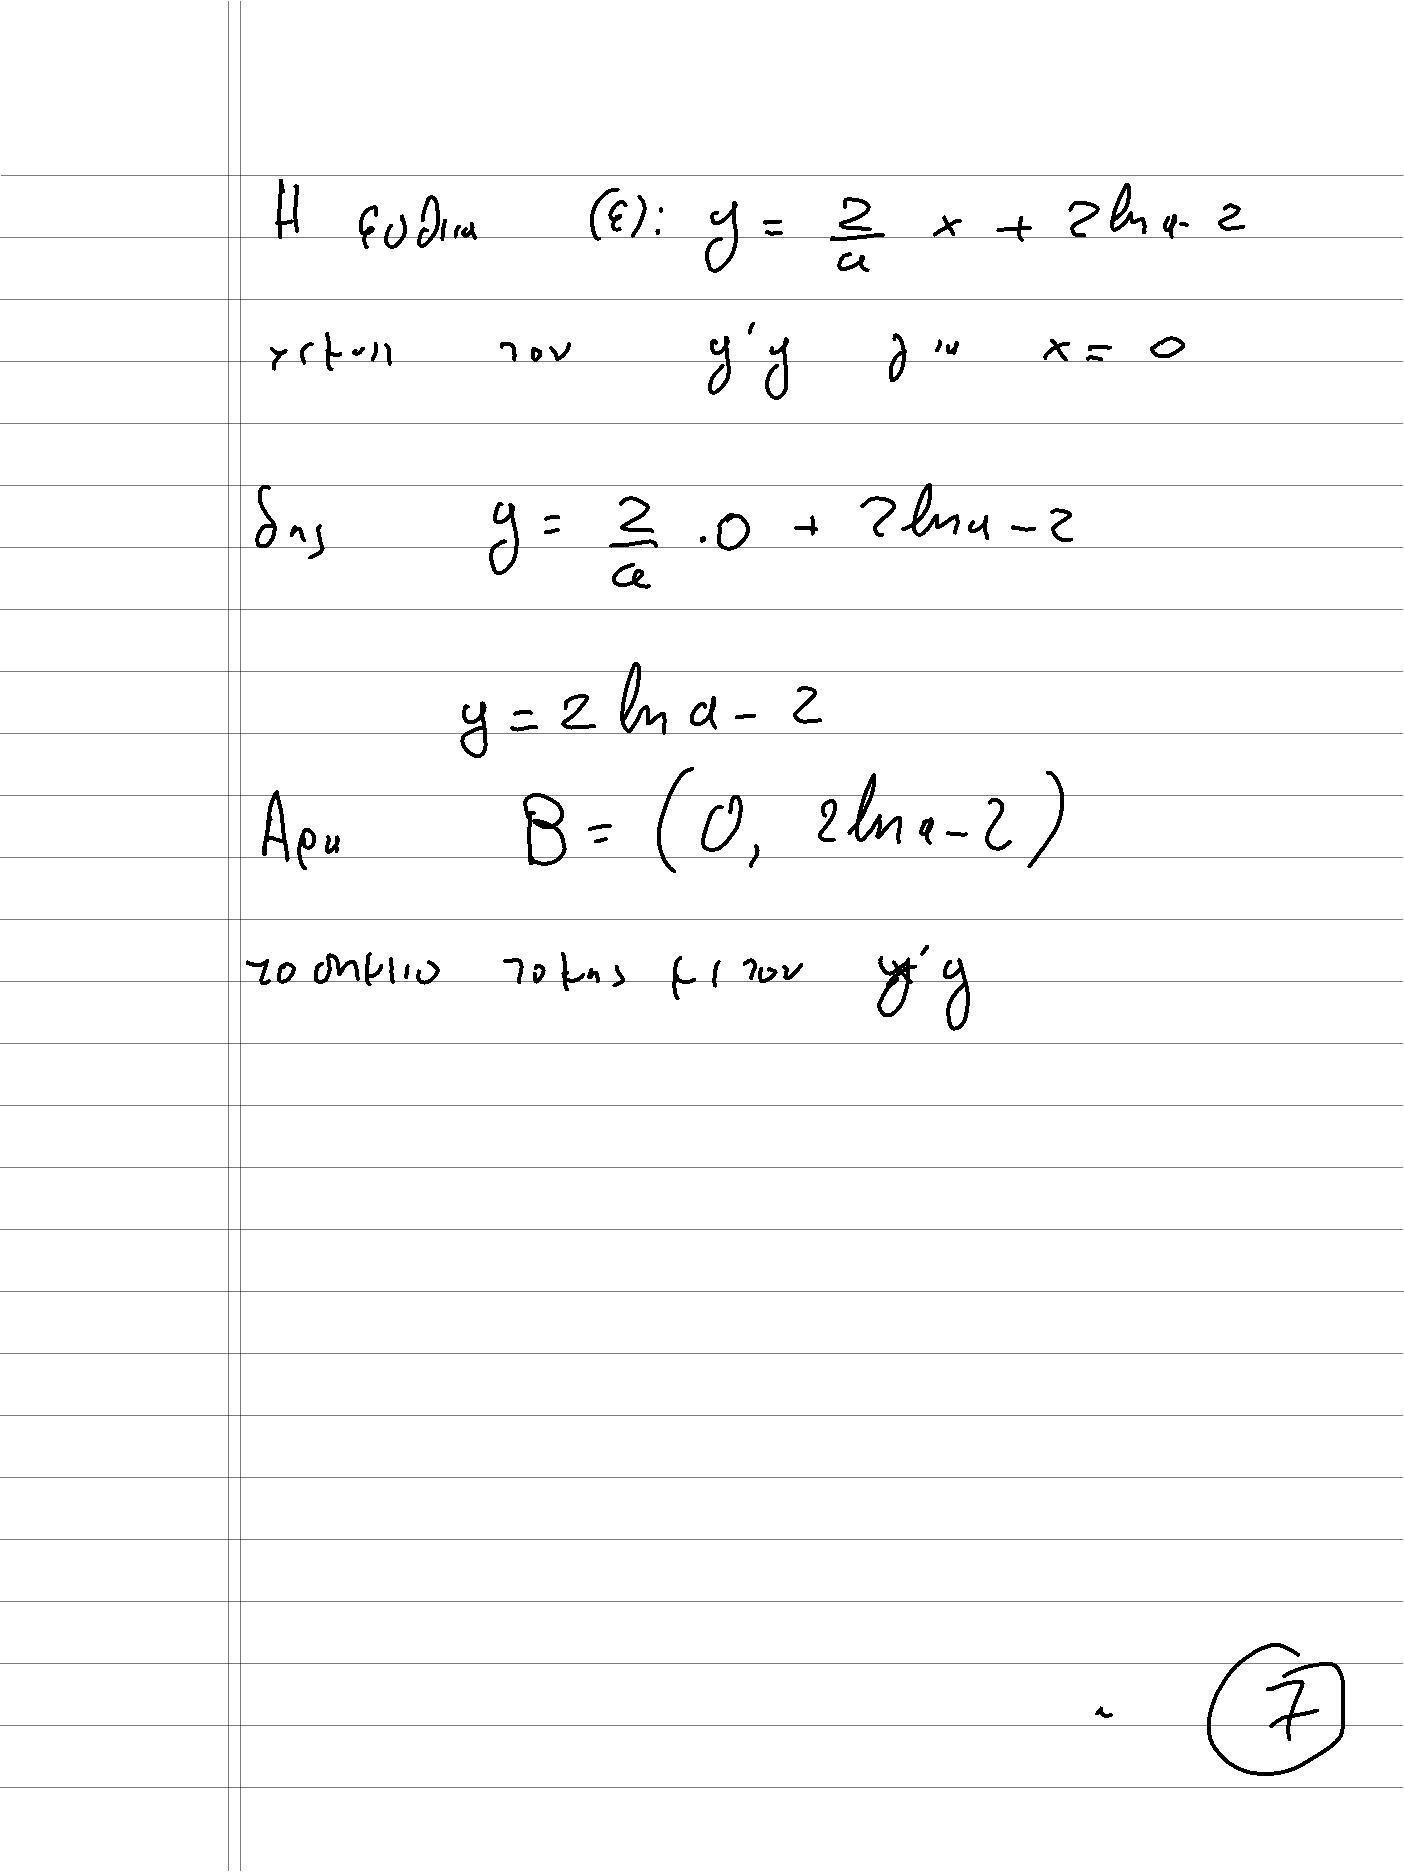 Η ευθεια (ε): y = 2/α x + 2lnα - 2
τεμνει τον y'y για x = 0
δης y = 2/α · 0 + 2lnα - 2
y = 2 lnα - 2
Αρα B = (0, 2lnα - 2)
το σημειο τομης με τον y'y
7